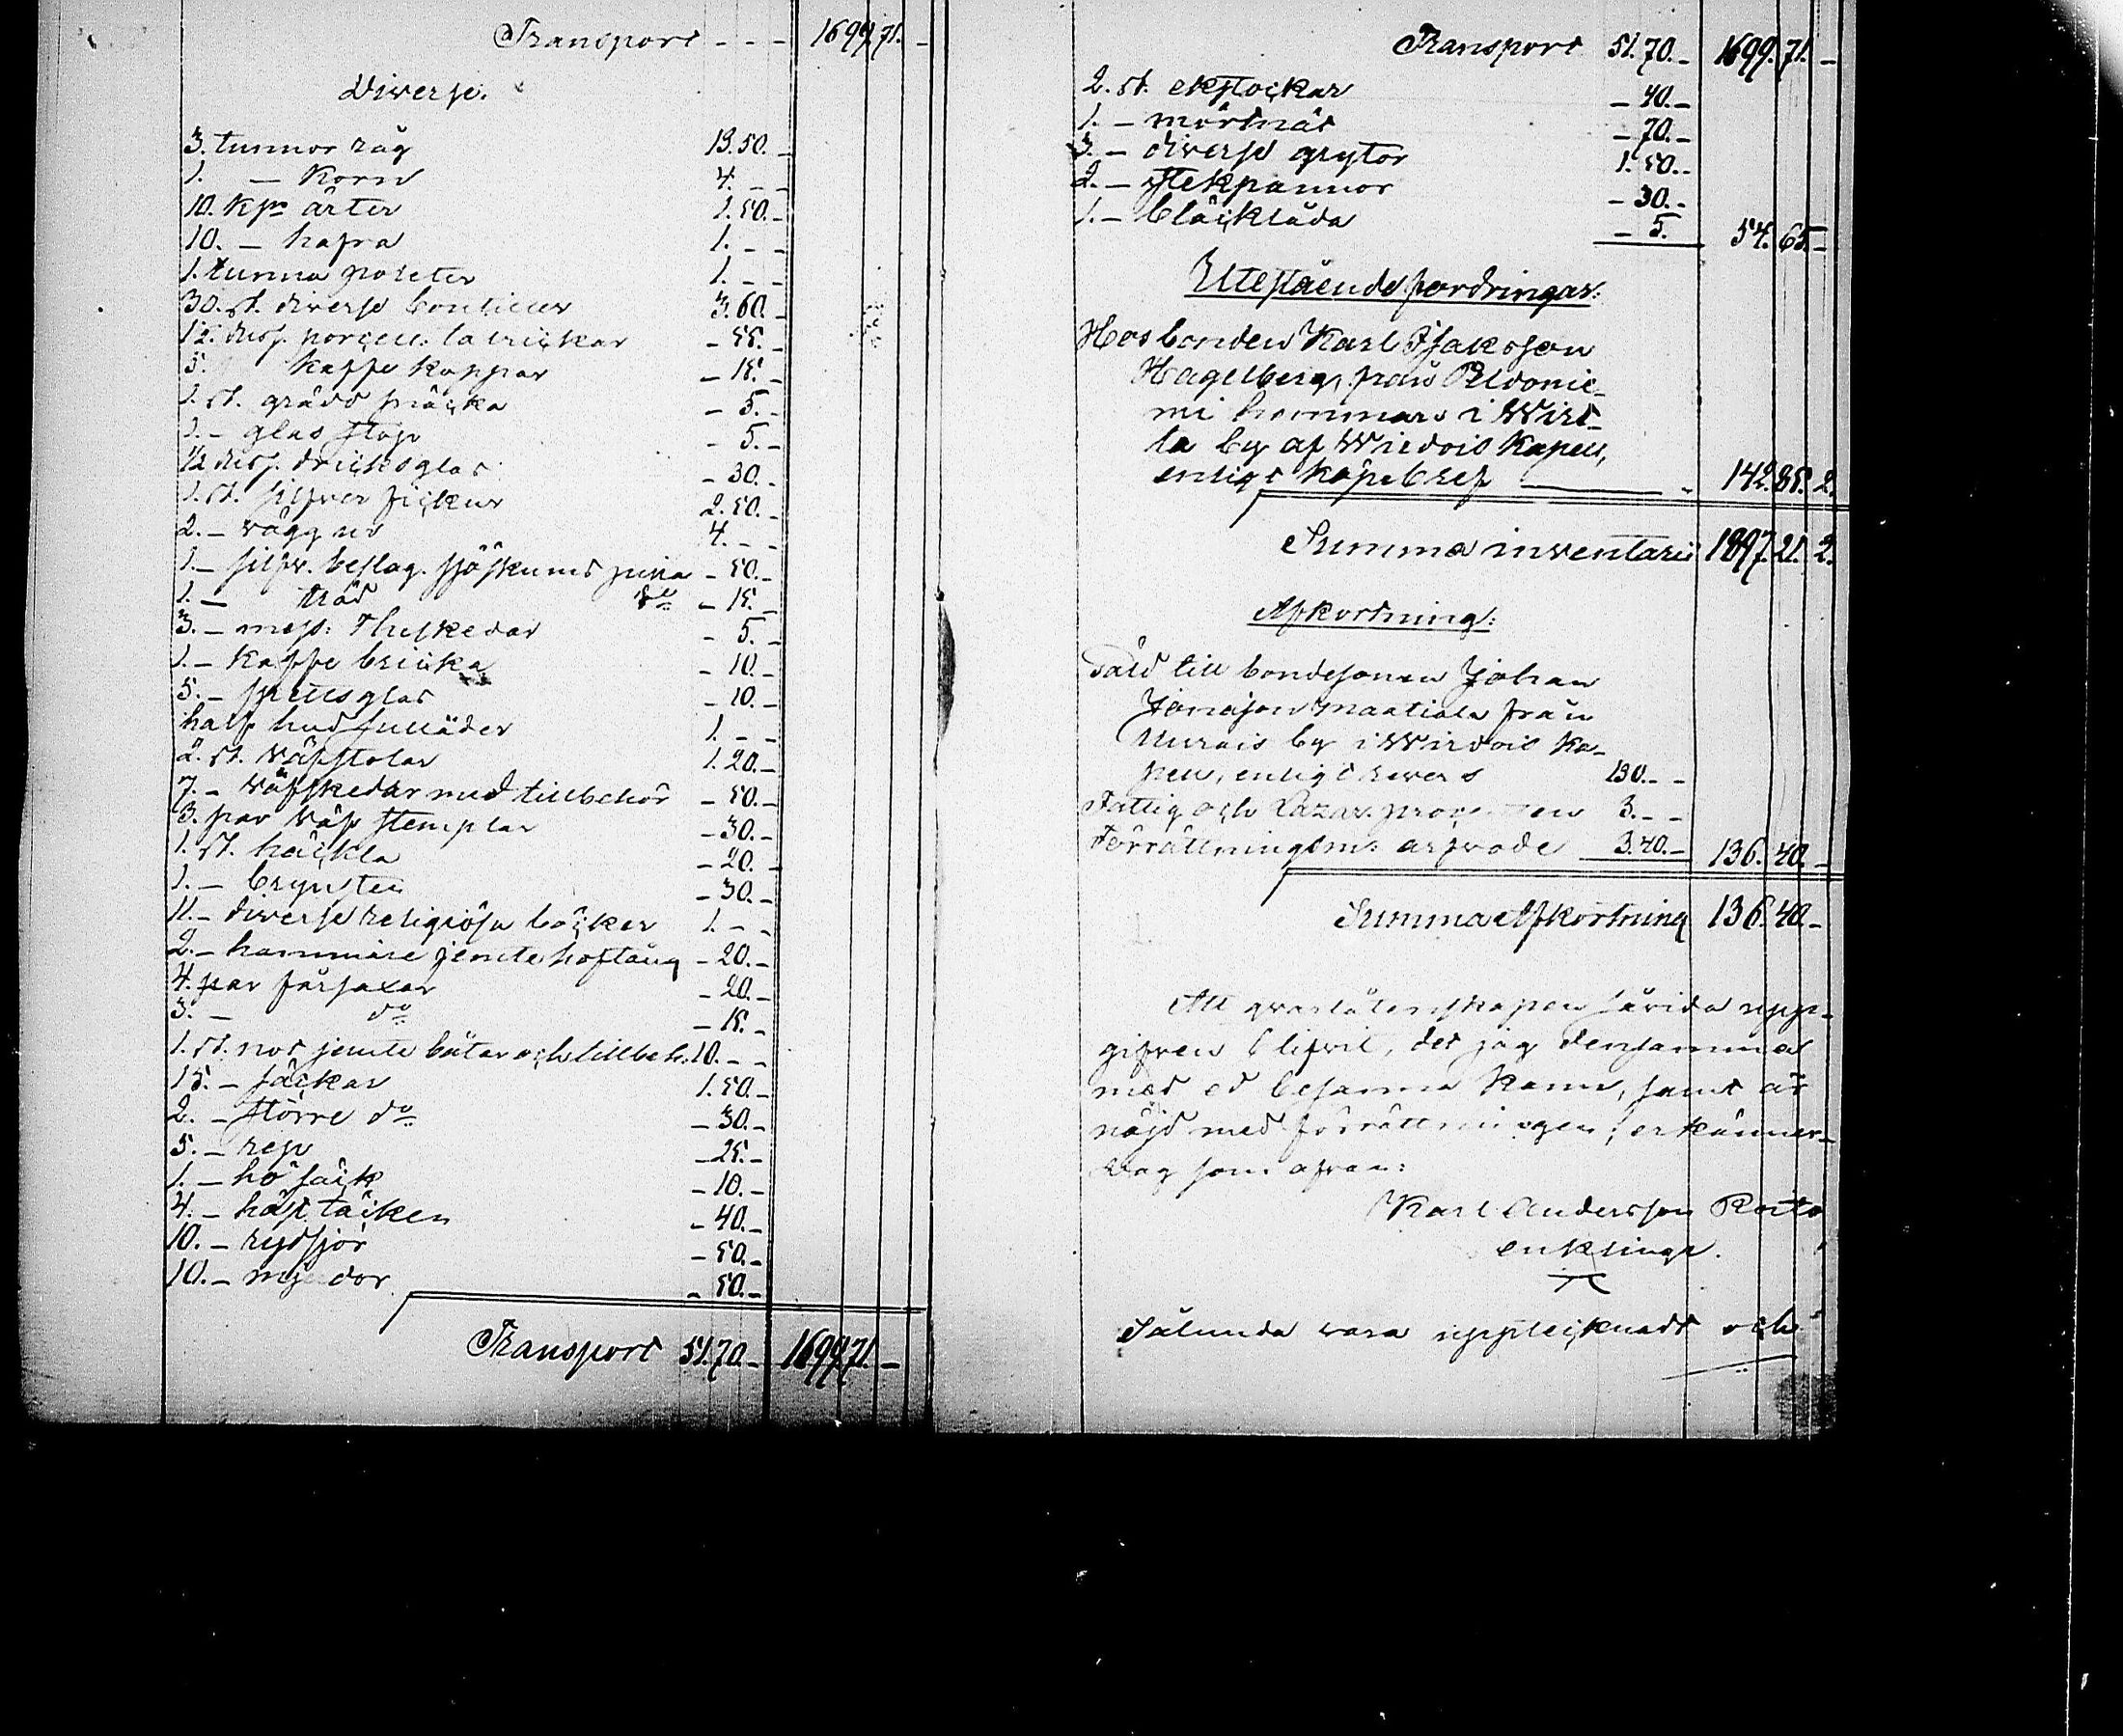 Transport - - - 1699. 71. -
Diverse.
3. tunnor råg 13. 50. -
1. — Korn 4. - -
10. Kpr ärter 1. 50. -
10. — hafra 1. - -
1. tunna poteter 1. - -
30. st. diverse bouteller 3. 60. -
1½ duss. porcell: talrickar - 55. -
5. kaffe koppar - 15. -
1. st. grädd snäcka - 5. -
1. — glas stop - 5. -
½ duss. dricksglas - 30. -
1. st. silfver fickur 2. 50. -
2. — väggur 4. - -
1. — silfv. beslag. sjöskums pipa - 50. -
1. — träd do - 15. -
3. — mess: Theskedar - 5. -
1. — Kaffe bricka - 10. -
5. — spetsglas - 10. -
half hud sulläder 1. - -
2. st. Väfstolar 1. 20. -
7. — Väfskedar med tillbehör - 50. -
3. par Väf stemplar - 30. -
1. st. häckla - 20. -
1. — brynsten - 30. -
11. — diverse religiösa böcker 1. - -
2. — hammare jemte hoftång - 20. -
4. par fårsaxar - 20. -
3. — do - 15. -
1. st. not jemte båtar och tillbeh: 10. - -
15. — säckar 1. 50. -
2. — större do - 30. -
5. — rep - 25. -
1. — hö säck - 10. -
4. — häst täcken - 40. -
10. — ryssjor - 50. -
10. — mjerdor - 50. -
Transport 51. 70. - 1699. 71. -
Transport 51. 70. - 1699. 71. -
2. st. ekstockar - 40. -
1. — mörtnät - 70. -
3. — diverse grytor 1. 50. -
2. — stekpannor - 30. -
1. — bläcklåda - 5. 54. 65. -
Utestående fordringar:
Hos bonden Karl Isaksson
Hagelberg, från Peldonie-
mi hemmans i Wirt-
la by af Wirdois Kapell,
enligt köpebref — 142. 85. 2.
Summa inventarii 1897. 21. 2.
Afkortning:
Såld till bondesonen Johan
Jonasson Maatiala från
Murois by i Wirdois Ka-
pell, enligt revers 130. - -
Fattig och Lazar. procenten 3. - -
Förrättningsm: arfvode 3. 40. - 136. 40. -
Summa Afkortning 136. 40. -
Att qvarlåtenskapen sårida upp-
gifven blifvit, det jag densamma
med ed besanna kann, samt är
nöjd med förrättningen; erkännes
Dag som ofvan:
Karl Andersson
enkling.
Sålunda vara upptecknadt och